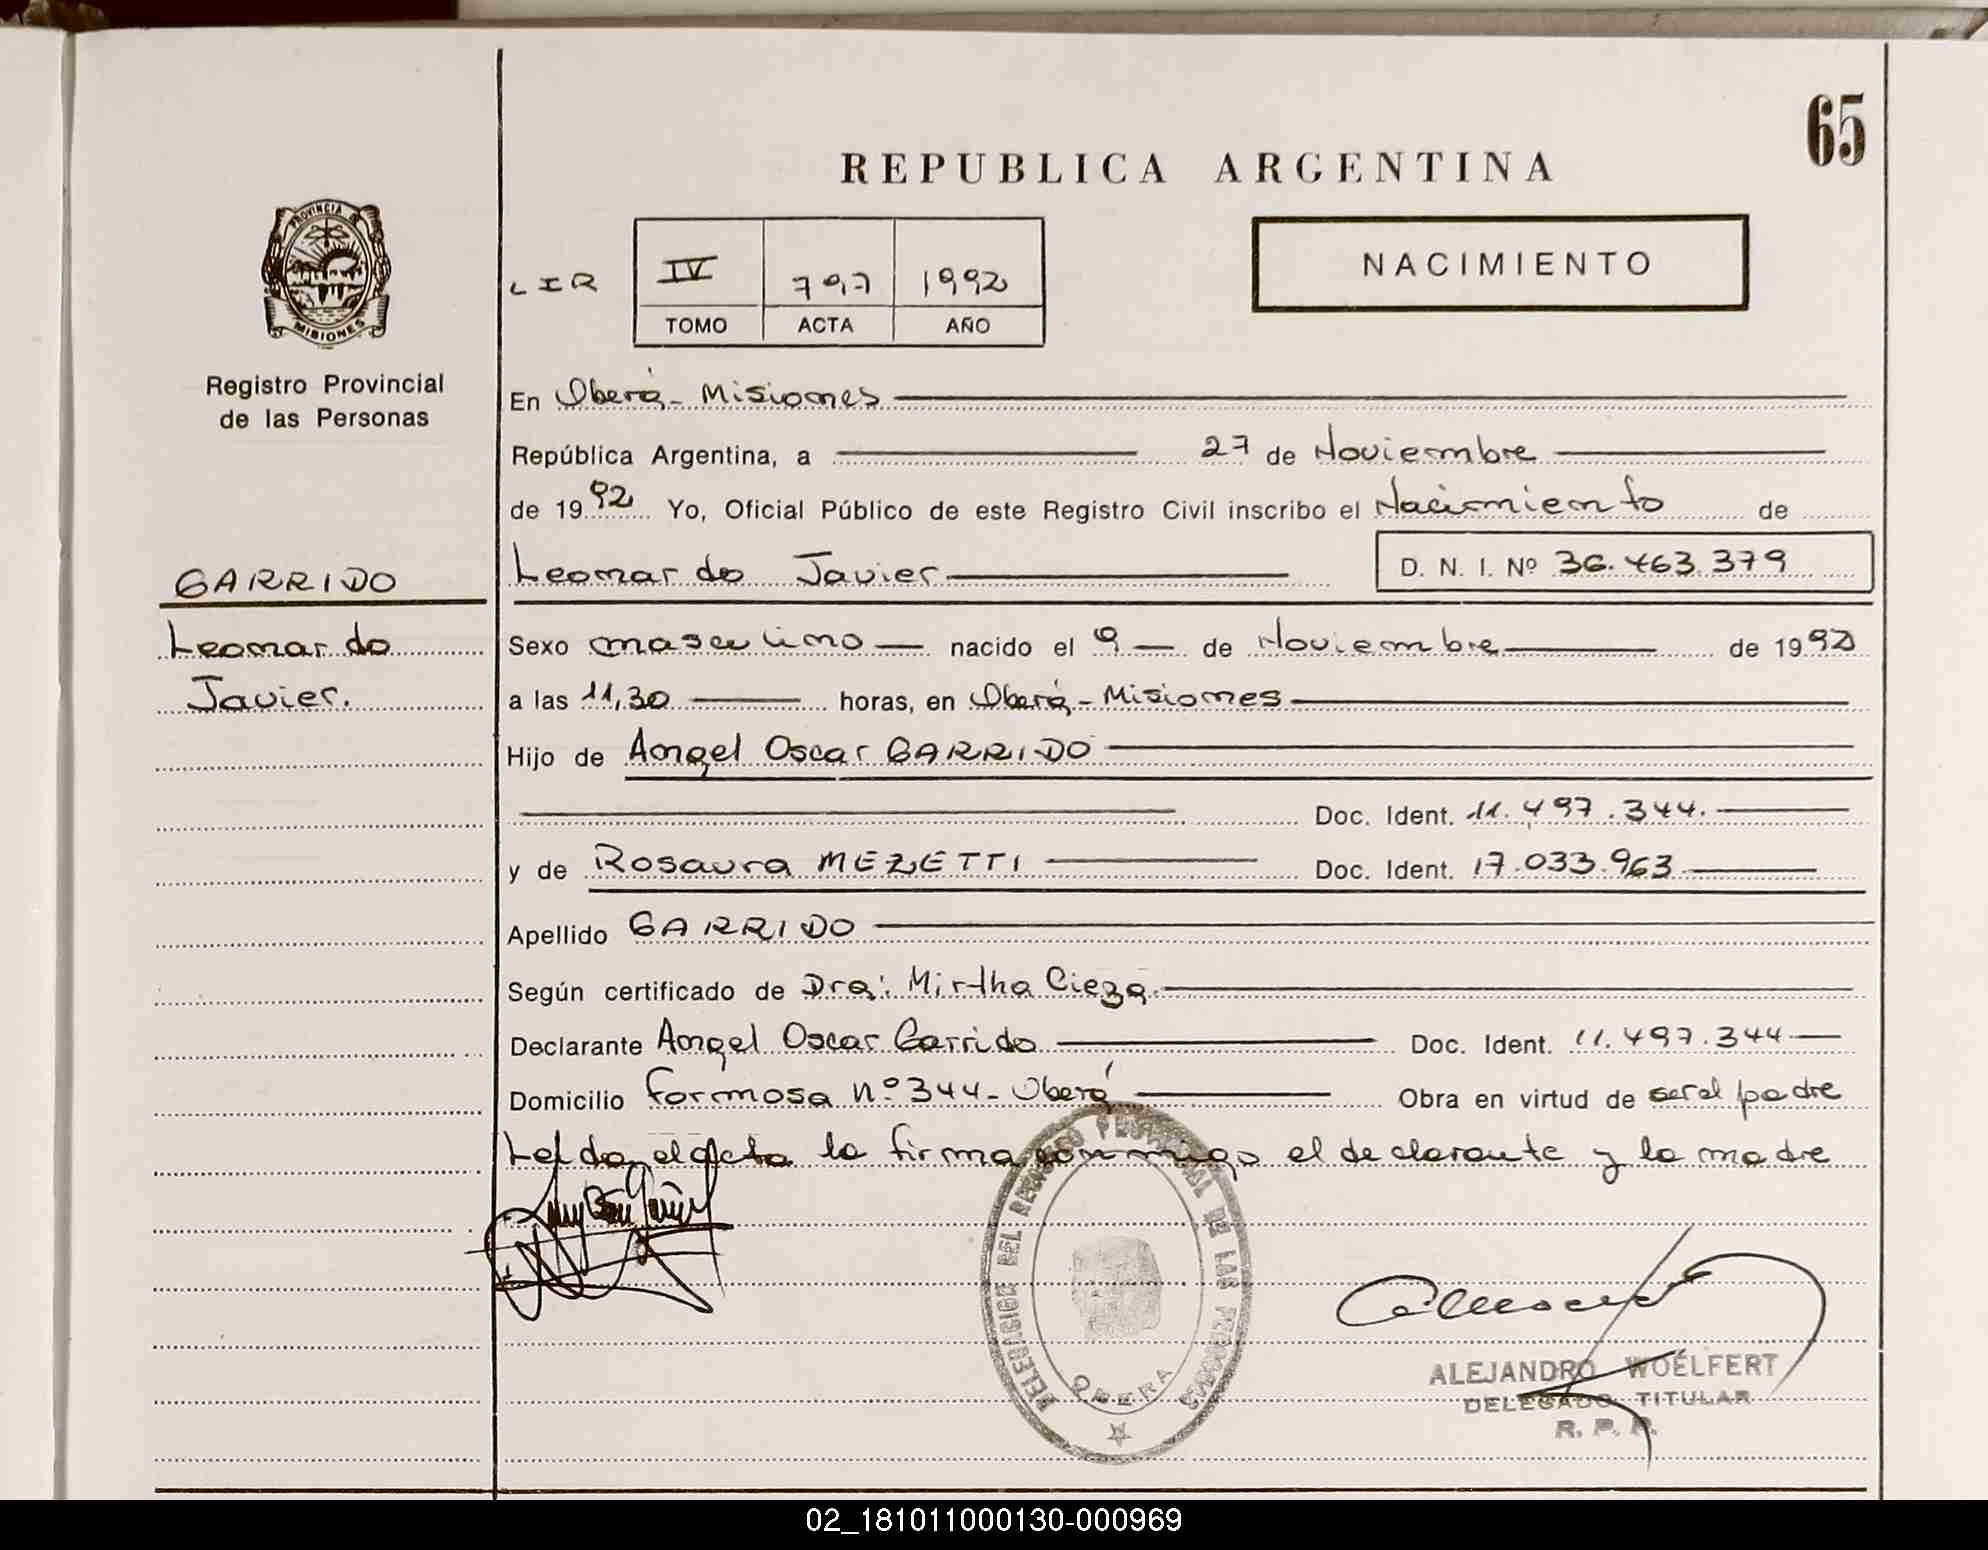 65
REPUBLICA ARGENTINA
PROVINCIA DE
MISIONES
Registro Provincial
de las Personas
LIR
IV 797 1992
TOMO ACTA AÑO
NACIMIENTO
En Oberá - Misiones
República Argentina, a 27 de Noviembre
de 1992 Yo, Oficial Público de este Registro Civil inscribo el Nacimiento de
Leonardo Javier D. N. I. Nº 36.463.379
GARRIDO
Leonardo
Javier.
Sexo masculino nacido el 9 de Noviembre de 1992
a las 11,30 horas, en Oberá - Misiones
Hijo de Angel Oscar GARRIDO
Doc. Ident. 11.497.344.
y de Rosaura MEZETTI Doc. Ident. 17.033.963
Apellido GARRIDO
Según certificado de Dra: Mirtha Cieza.
Declarante Angel Oscar Garrido Doc. Ident. 11.497.344
Domicilio Formosa Nº 344 - Oberá Obra en virtud de ser el padre
Leída el acta la firma conmigo el declarante y la madre
DELEGACION DEL REGISTRO PROVINCIAL DE LAS PERSONAS
OBERA
ALEJANDRO WOELFERT
DELEGADO TITULAR
R. P. P.
02_181011000130-000969